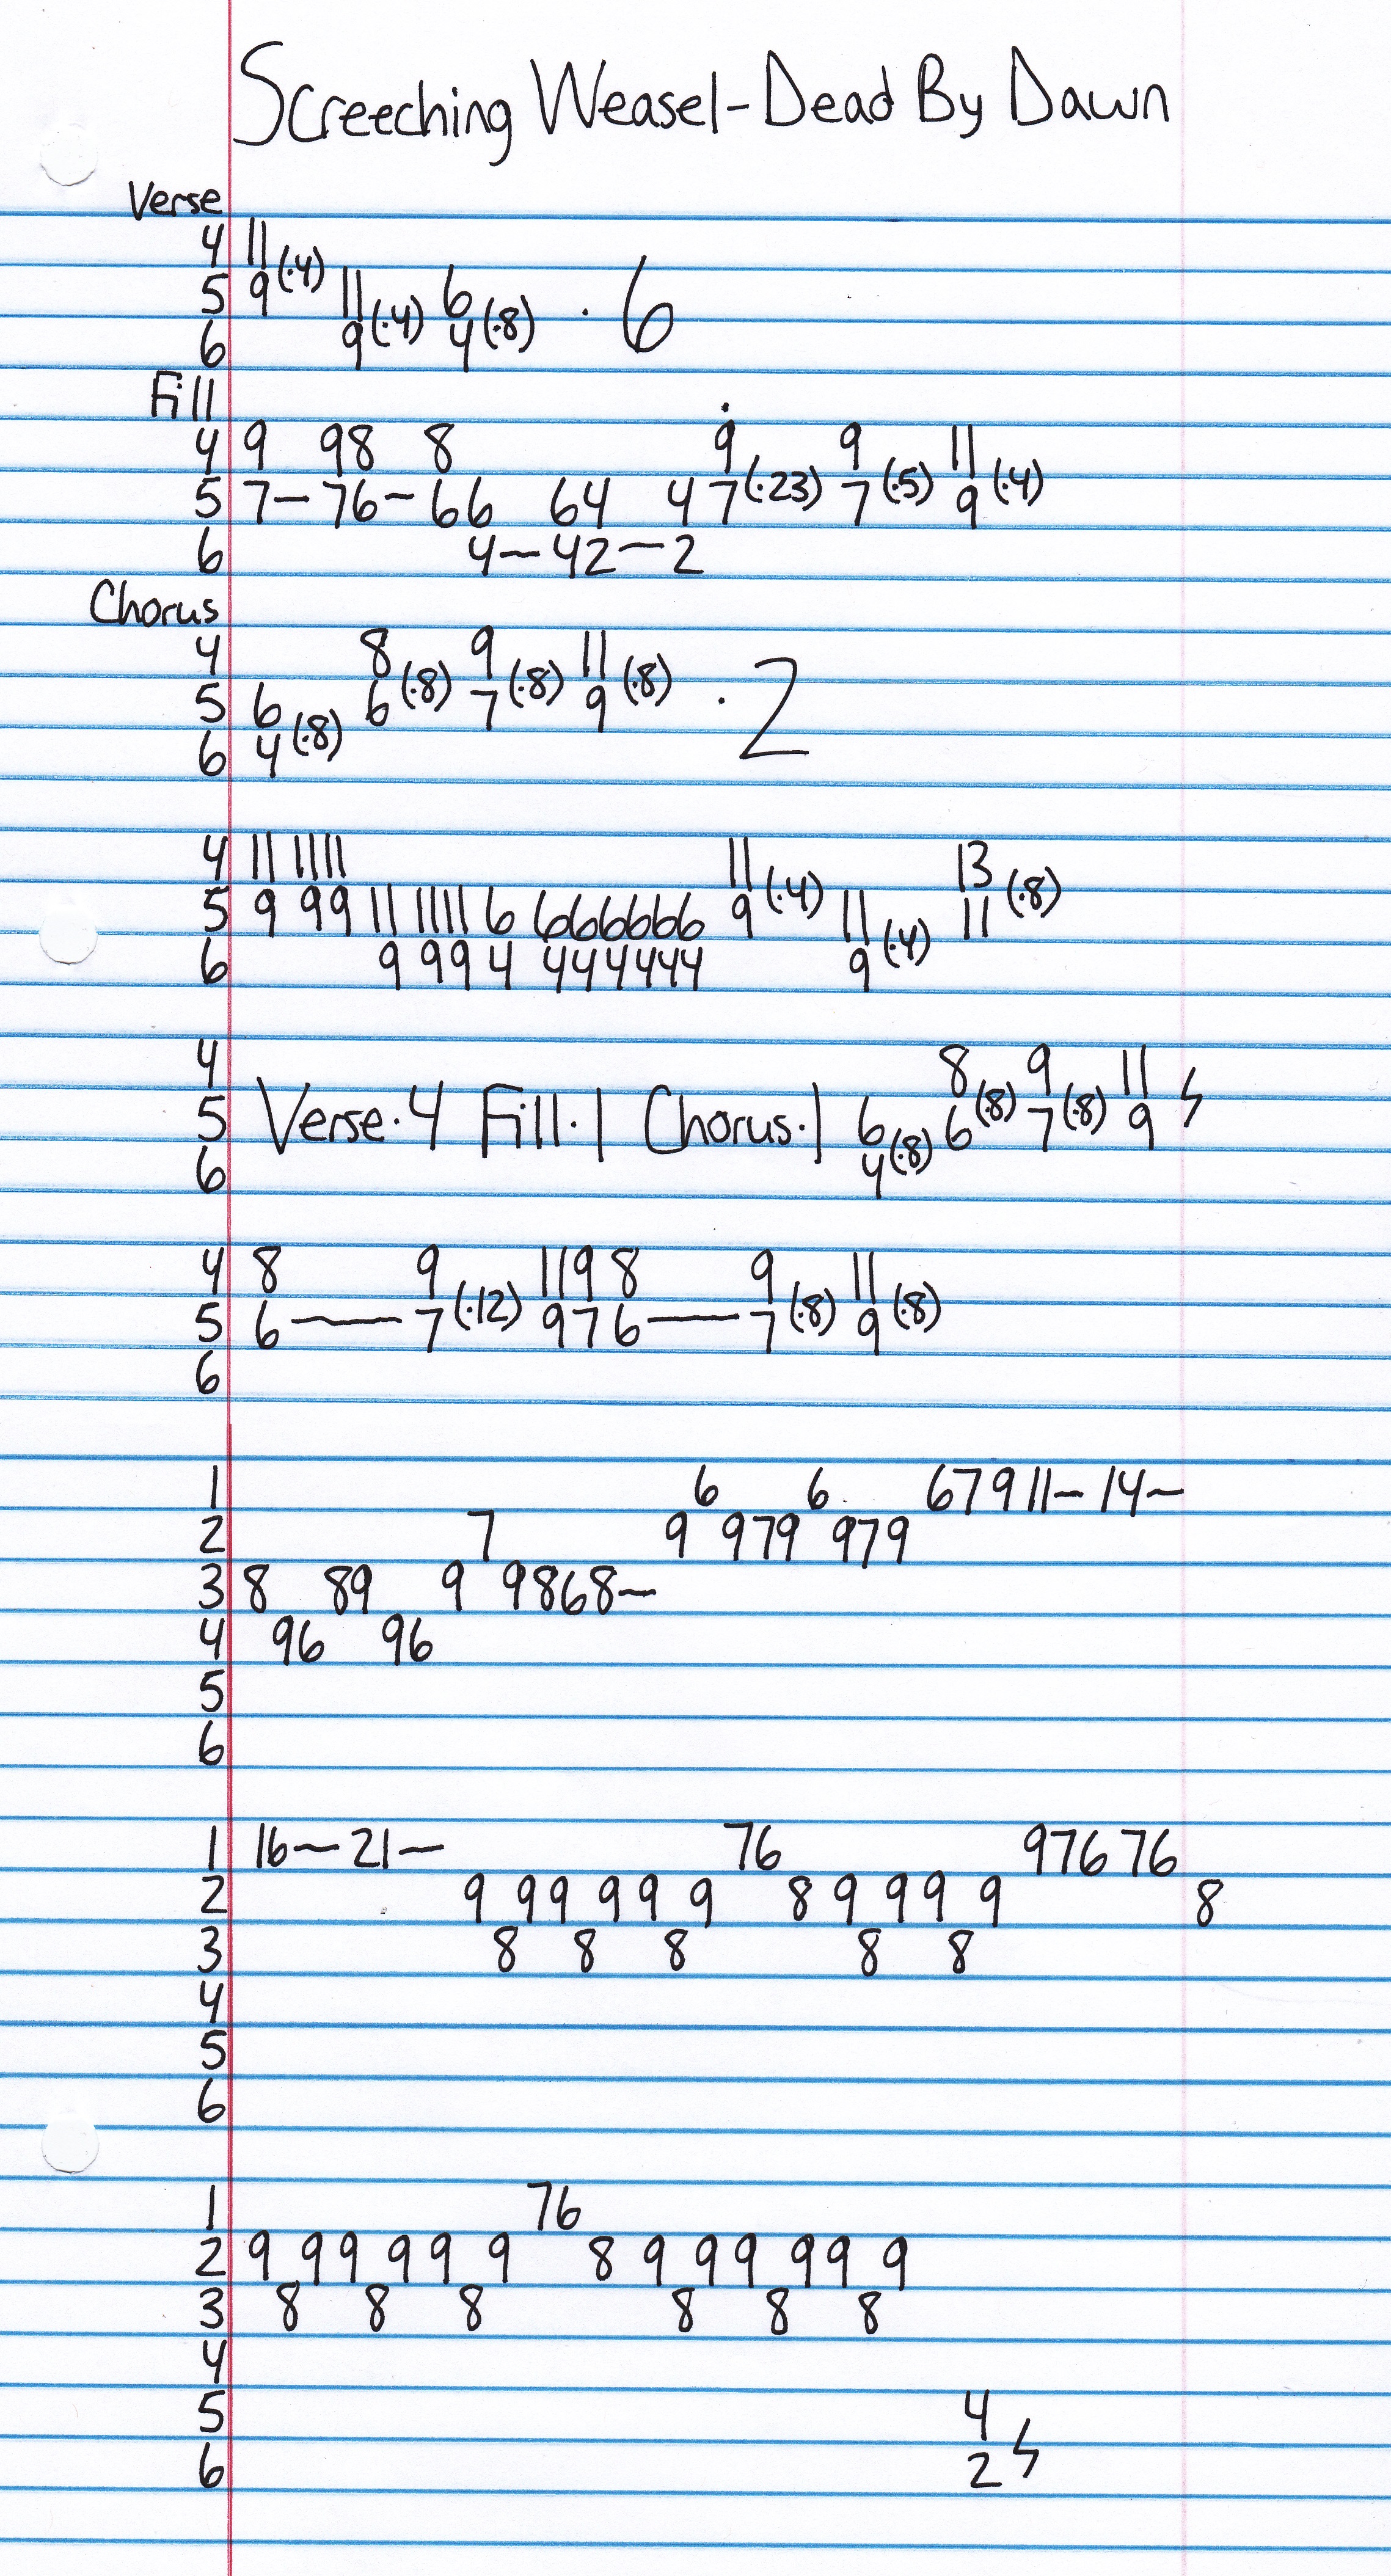 Screeching Weasel-Dead By Dawn
Verse
4 11
5 9 (·4) 11 6 · 6
6 9 (·4) 4 (·8)
Fill
4 9 98 8 9 9 11
5 7– 76– 66 64 4 7 (·23) 7 (·5) 9 (·4)
6 4–42–2
Chorus
4 8 9 11
5 6 6 (·8) 7 (·8) 9 (·8) · 2
6 4 (·8)
4 11 1111 11 13
5 9 99 11 1111 6 666666 9 (·4) 11 11 (·8)
6 9 99 4 444444 9 (·4)
4 8 9 11
5 Verse·4 Fill·1 Chorus·1 6 6 (·8) 7 (·8) 9
6 4 (·8)
4 8 9 119 8 9 11
5 6 — 7 (·12) 976 — 7 (·8) 9 (·8)
6
1 6 6 679 11– 14–
2 7 9 979 979
3 8 89 9 9868–
4 96 96
5
6
1 16– 21– 76 976 76
2 9 99 9 9 9 8 9 99 9 8
3 8 8 8 8 8
4
5
6
1 76
2 9 99 99 9 8 9 99 99 9
3 8 8 8 8 8 8
4
5 4
6 2